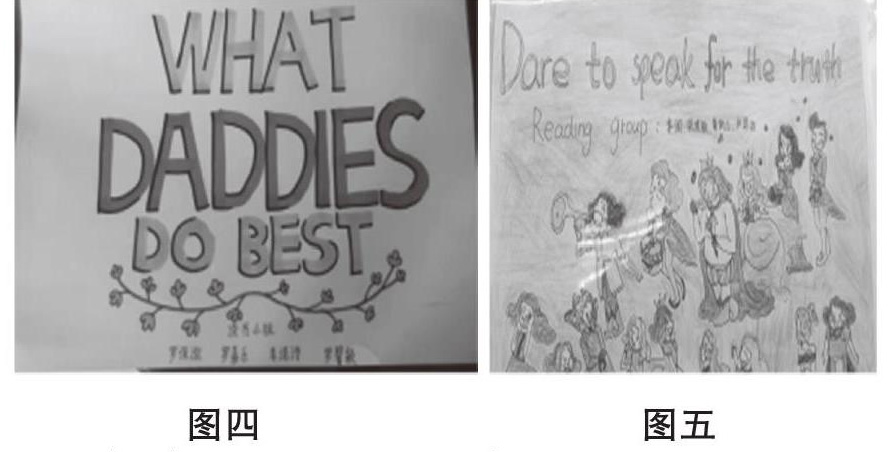 WHAT
DADDIES
DO BEST
Dare to speak for the truth
Reading group:
图四
图五